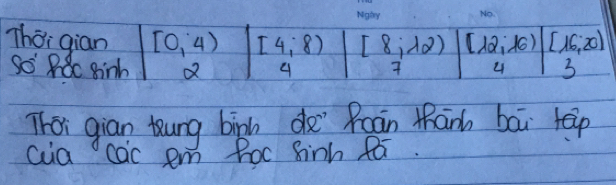 Ngày No.
Thời gian [0; 4) [4; 8) [8; 12) [12; 16) [16; 20)
Số học sinh 2 4 7 4 3
Thời gian trung bình để hoàn thành bài tập
của các em học sinh là .